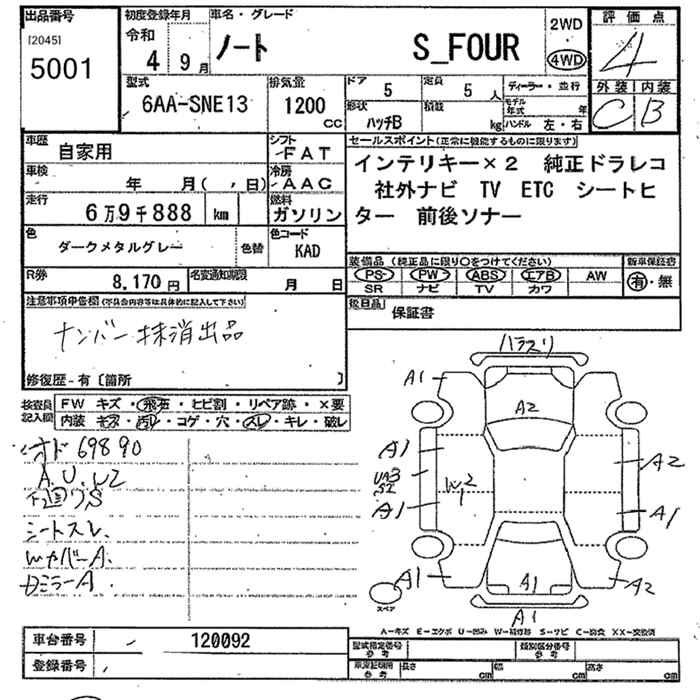 出品番号
[2045]
5001
初度登録年月
令和
4 9月
車名・グレード
ノート S_FOUR
2WD
4WD
評価点
4
外装 内装
C B
型式
6AA-SNE13
排気量
1200
cc
ドア
5
定員
5 人
ディーラー・並行
形状
ハッチB
積載
kg
モデル年式
年
ハンドル 左・右
車歴
自家用
シフト
FAT
車検
年 月( , 日)
冷房
AAC
走行
6万9千888 km
燃料
ガソリン
色
ダークメタルグレー
色替
色コード
KAD
R券
8,170円
名変通知期限
月 日
セールスポイント(正常に機能するものに限ります)
インテリキー×2 純正ドラレコ
社外ナビ TV ETC シートヒ
ーター 前後ソナー
装備品(純正品に限り○をつけてください)
新車保証書
PS PW ABS エアB AW
有・無
SR ナビ TV カワ
後日品
保証書
注意事項申告欄(不具合内容等は具体的に記入して下さい)
ナンバー抹消出品
修復歴-有〔箇所 〕
検査員記入欄
FW キズ・飛石・ヒビ割・リペア跡・×要
内装 キズ・汚レ・コゲ・穴・スレ・キレ・破レ
オド 69890
A.U.W2
下廻りS
シートスレ
WカバーA.
DミラーA.
A1
A2
A1
A2
W2
1
A1
A1
A1
A1
A2
A1
スペア
A-キズ E-エクボ U-凹み W-補修跡 S-サビ C-腐食 XX-交換済
車台番号
120092
登録番号
型式指定番号
参考
類別区分番号
参考
車庫証明用
参考
長さ cm
幅 cm
高さ cm